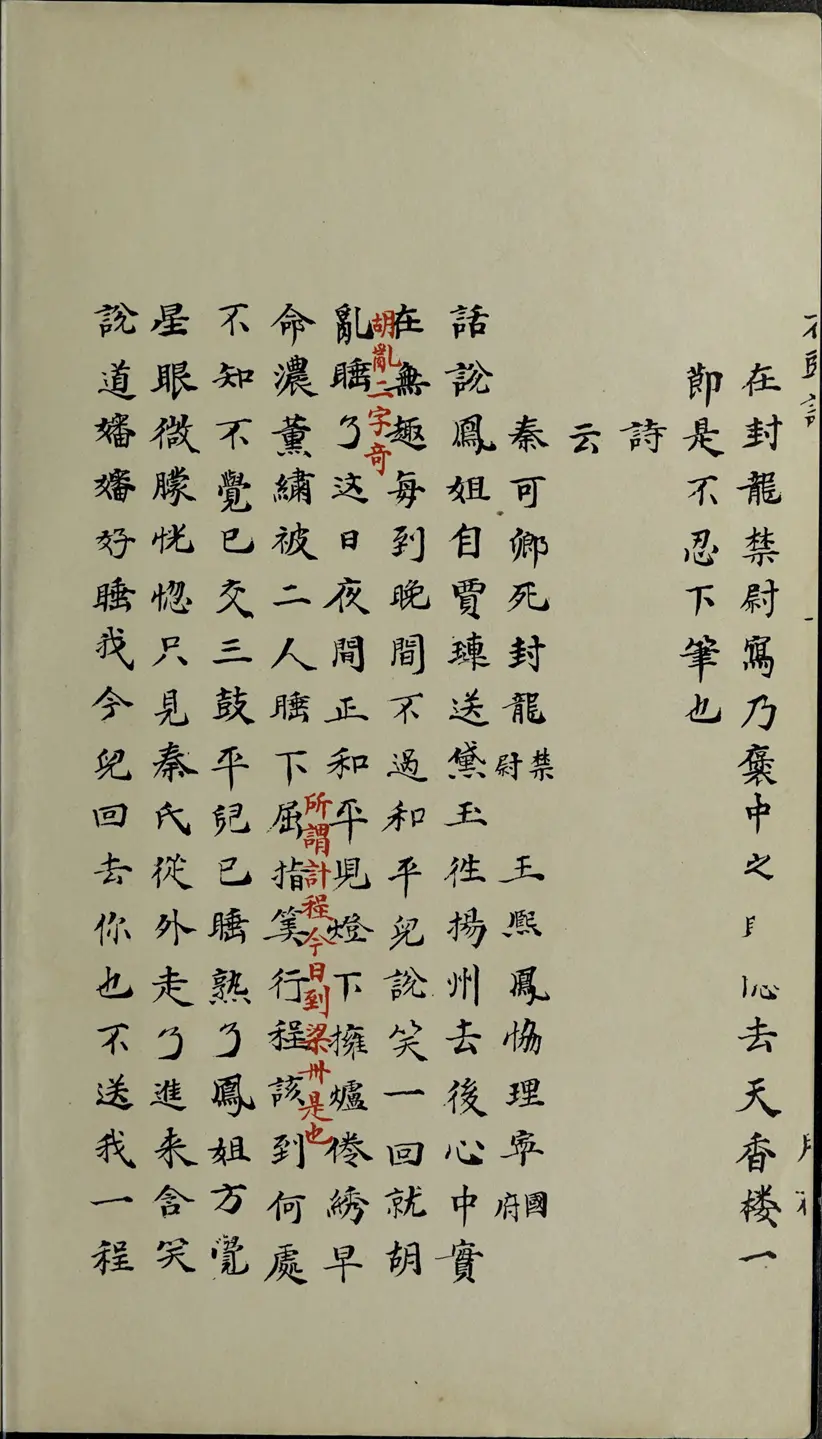 在封龍禁尉寫乃褒中之 去天香楼一
節是不忍下筆也
詩
云
秦可卿死封龍禁尉 王熙鳳協理寧國府
話說鳳姐自賈璉送黛玉徃揚州去後心中實
在無趣每到晚間不過和平兒說笑一回就胡
胡亂二字奇
亂睡了这日夜間正和平児燈下擁爐倦綉早
所謂計程今日到梁州是也
命濃薰繡被二人睡下屈指筭行程該到何處
不知不覺已交三鼓平兒已睡熟了鳳姐方覺
星眼微朦恍惚只見秦氏從外走了進来含笑
說道嬸嬸好睡我今兒回去你也不送我一程